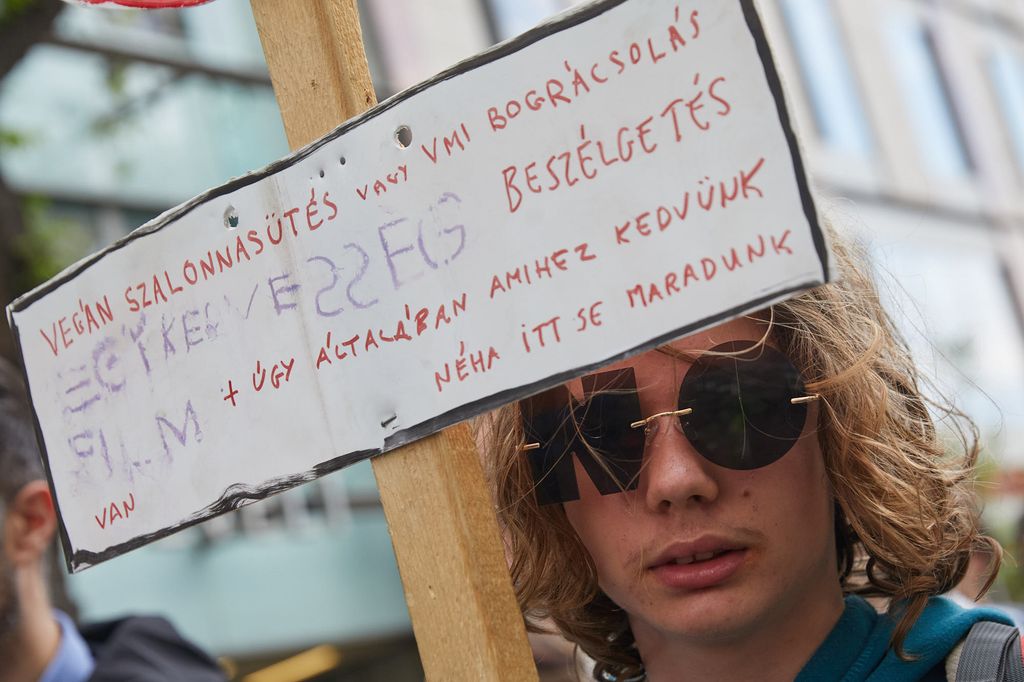 VEGÁN SZALONNASÜTÉS VAGY VMI BOGRÁCSOLÁS
EGYKEDVESSÉG BESZÉLGETÉS
FILM + ÚGY ÁLTALÁBAN AMIHEZ KEDVÜNK
VAN NÉHA ITT SE MARADUNK
NO